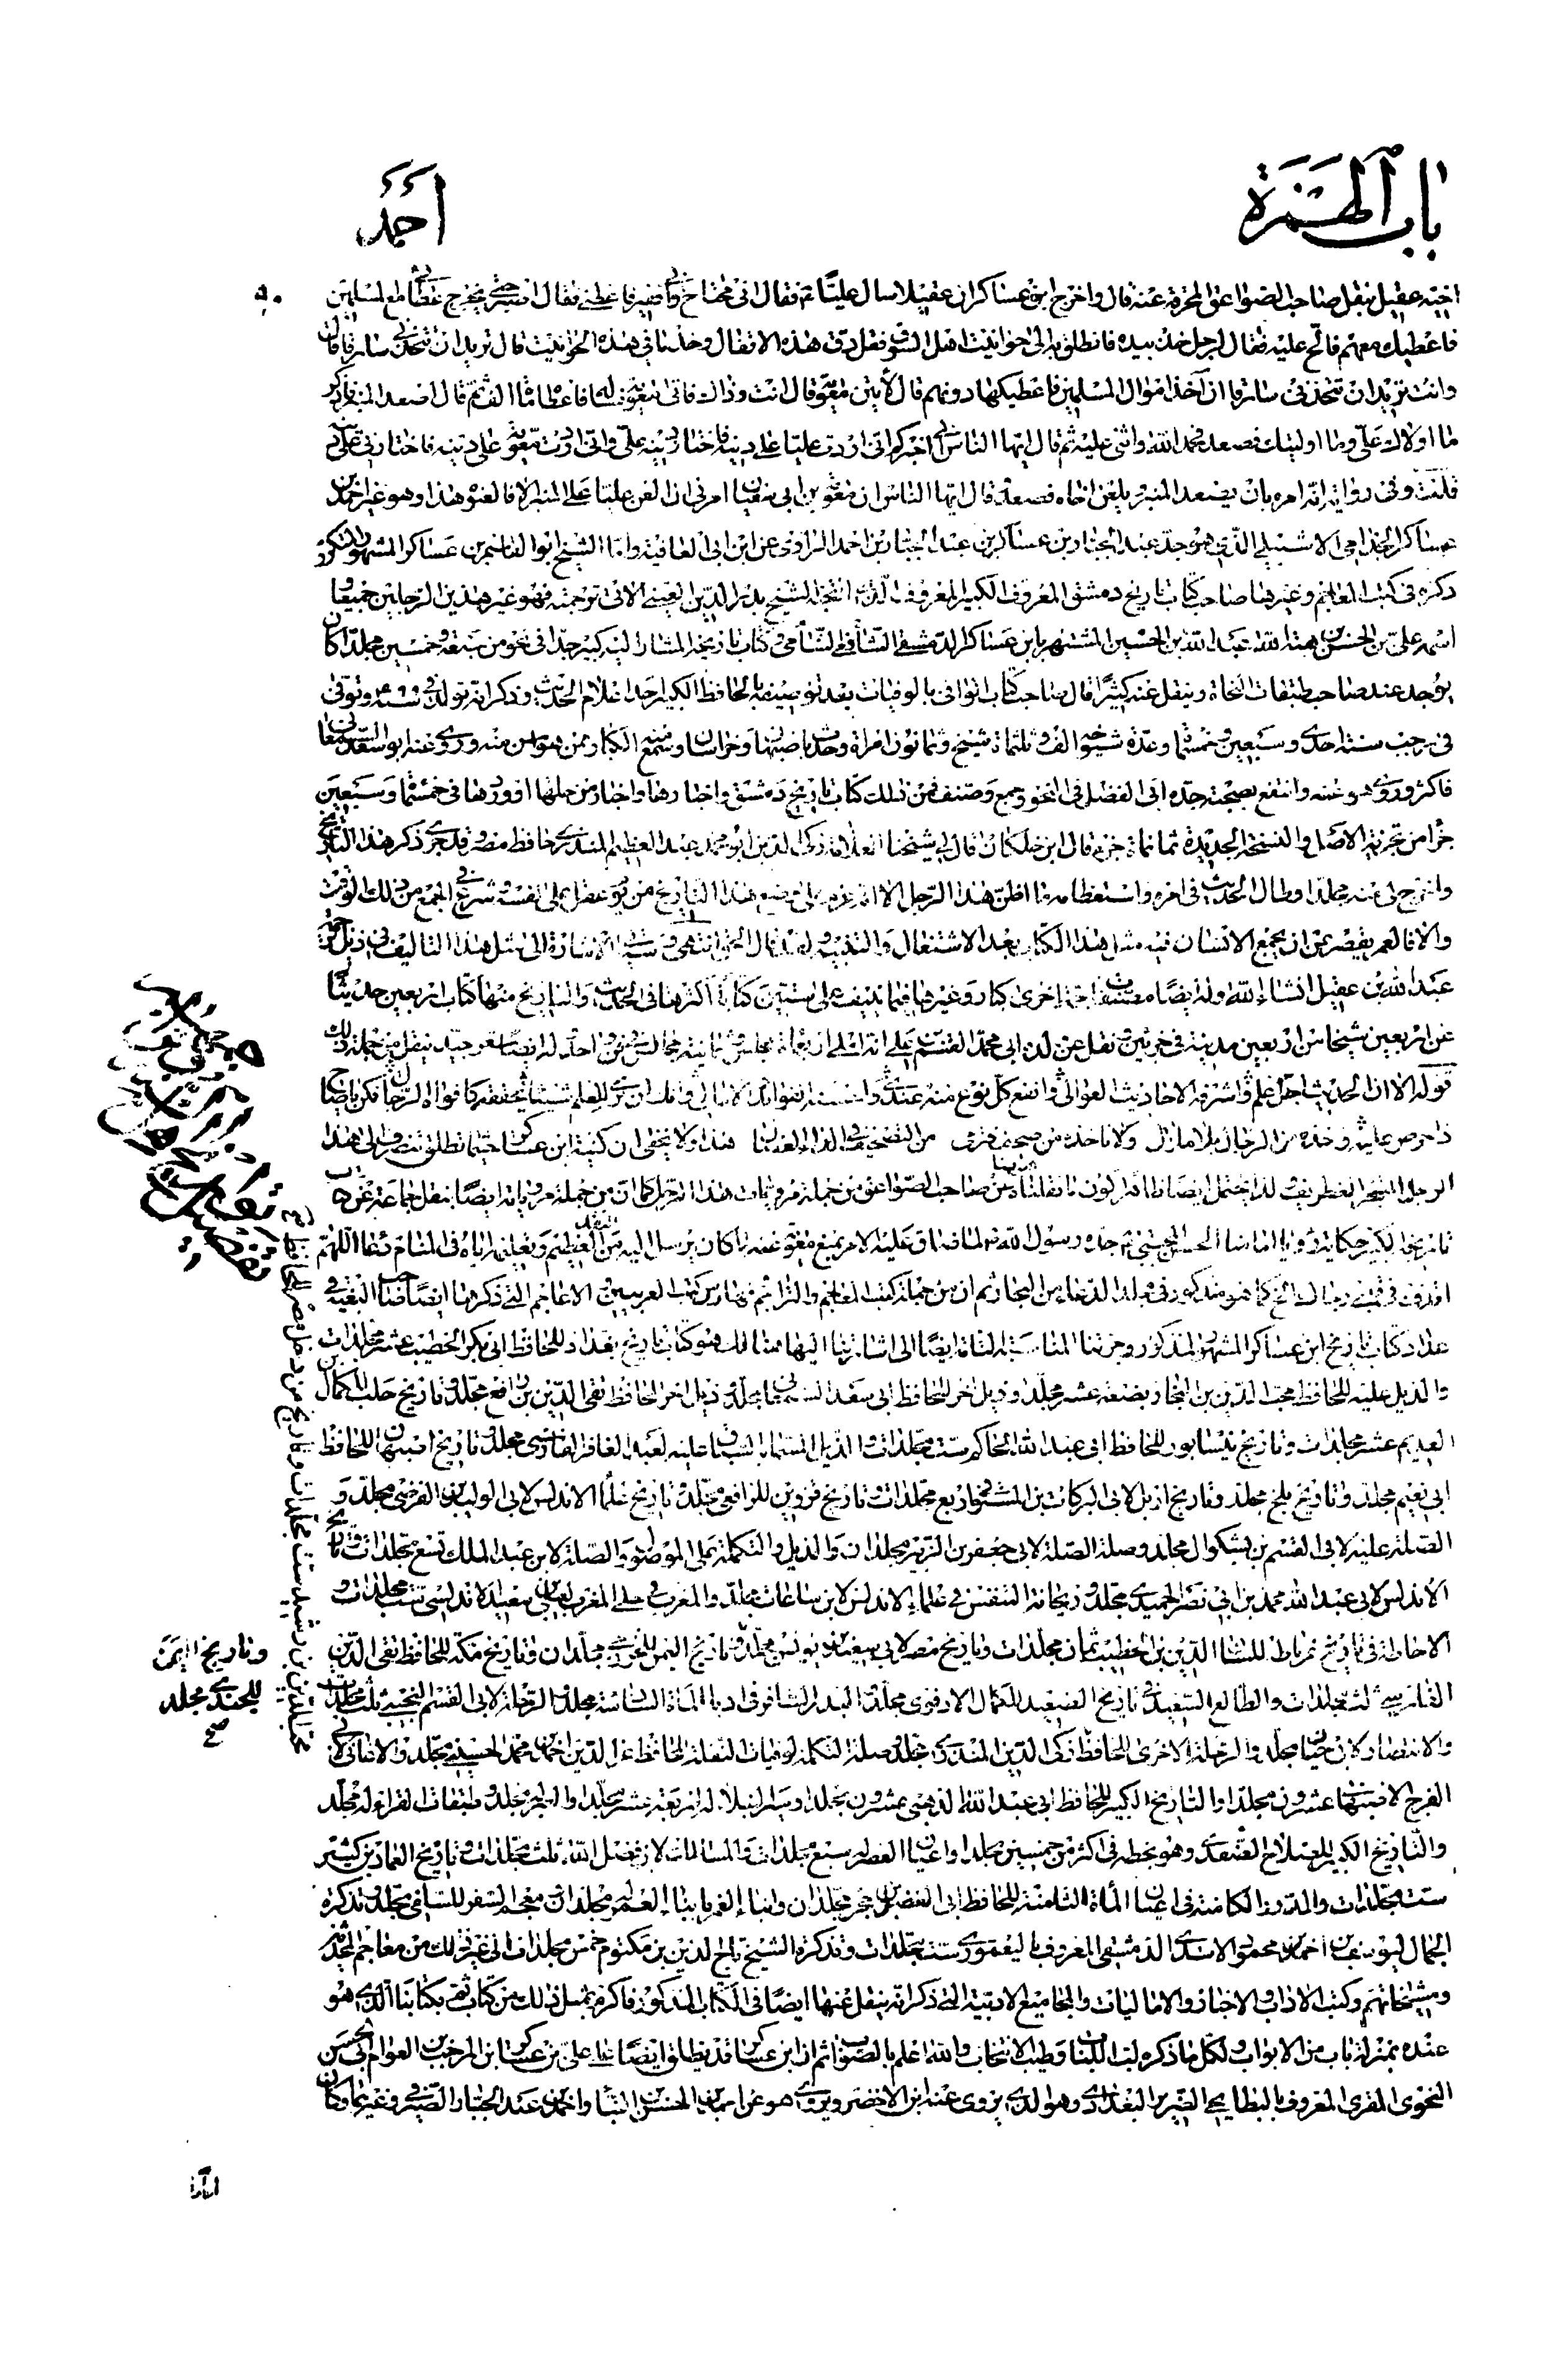 باب الهمزة
احمد
٨٠
اخيه عقيل بنقل صاحب الصواعق المحرقة عنه قال واخرج ابن عساكر ان عقيلا سال عليا ثم فقال اني محتاج واني فقير فاعطني فقال اصبر حتى يخرج عطائي مع المسلمين
فاعطيك معهم فالح عليه فقال لرجل خذ بيده فانطلق به الى حوانيت اهل السوق فقل دق هذه الاقفال وخذ ما في هذه الحوانيت قال تريد ان تتخذني سارقا قال
وانت تريد ان تتخذني سارقا ان آخذ اموال المسلمين فاعطيكها دونهم قال لأتين معوية قال انت وذاك فاتى معوية فساله فاعطاه مائة الف ثم قال اصعد المنبر فاذكر
ما اولاك علي وما اوليتك فصعد فحمد الله واثنى عليه ثم قال ايها الناس اني اخبركم اني اردت عليا على دينه فاختار دينه علي واني اردت معوية على دينه فاختارني على دينه
قلت وفي رواية انه امره بان يصعد المنبر يلعن اخاه فصعد قال ايها الناس ان معوية بن ابي سفيان امرني ان العن عليا على المنبر الا فالعنوه هذا وهو غير احمد بن
عساكر الجذامي الاشبيلي الذي هو جد عبد الجبار بن عساكر بن عبد الجبار بن احمد الراوي عن ابن ابي العافية واما الشيخ ابو القاسم بن عساكر المشهور المتكرر
ذكره في كتب المعاجم وغيرها صاحب كتاب تاريخ دمشق المعروف الكبير المعروف الذي انتخبه الشيخ بدر الدين العيني الاتي ترجمته فهو غير هذين الرجلين جميعا و
اسمه علي بن الحسن بن هبة الله بن عبد الله بن الحسين المشتهر بابن عساكر الدمشقي الشافعي الشامي وكتاب تاريخه المشار اليه كبير جدا في نحو من سبعة وخمسين مجلدا كان
يوجد عند صاحب طبقات النحاة وينقل عنه كثيرا قال صاحب كتاب الوافي بالوفيات بعد توصيفه بالحافظ الكبير احد اعلام الحديث وذكر انه تولد في سنة ٤٩٩ وتوفي
في رجب سنة احدى وسبعين وخمسمائة وعدة شيوخه الف وثلثمائة شيخ وثمانون امراة وحدث باصبهان وخراسان وسمع منه الكبار ممن هو اسن منه وروى عنه ابو السعد السمعاني
فاكثر وروى هو عنه وانتفع بصحبة جده ابي الفضل في النحو وجمع وصنف فمن ذلك كتاب تاريخ دمشق واخبارها واخبار من حلها او وردها في خمسمائة وسبعين
جزأ من تجزية الاصل والنسخة الجديدة ثمانمائة جزء قال ابن خلكان قال لي شيخنا العلامة زكي الدين ابو محمد عبد العظيم المنذري حافظ مصر وقد جرى ذكر هذا التاريخ
واخرج لي منه مجلدا وطال الحديث في امره واستعظامه ما اظن هذا الرجل الا انه عزم على وضع هذا التاريخ من يوم عقل على نفسه وشرع في الجمع من ذلك الوقت
والا فالعمر يقصر عن ان يجمع الانسان فيه مثل هذا الكتاب بعد الاشتغال والتنبيه ولقد قال الحق انتهى وسياتي الاشارة الى مثل هذا التاليف في ذيل ترجمة
عبد الله بن عقيل انشاء الله وله ايضا مصنفات اخرى كبار وغيرها فيما ينيف على ستين كتابا اكثرها في الحديث والتاريخ منها كتاب اربعين حديثا
عن اربعين شيخا من اربعين مدينة في جزئين ونقل عن ولده ابي محمد القسم علي انه املى اربعمائة مجلس وثمانية مجالس في فن واحد وله ايضا شعر جيد ينقل من جملة ذلك
قوله الا ان الحديث اجل علم واشرفه الاحاديث العوالي وانفع كل نوع منه عندي واحسنه الفوائد الامالي وانك لن ترى للعلم شيئا يحققه كافواه الرجال فكن يا صاح
ذا حرص عليه وخذه من الرجال بلا ملال ولا تاخذه من صحف فترمى من التصحيف بالداء العضال هذا ولا يخفى ان كنية ابن عساكر حيثما تطلق تنصرف الى هذا
الرجل المتبحر الغطريف لذا يحتمل ايضا ان يكون ما نقلناه عن صاحب الصواعق من جملة مرويات هذا الرجل كما ان من جملة مروياته ايضا بنقل جماعة عن كتاب
تاريخه الكبير حكاية رؤيا امامنا الحسن المجتبى ثم جده رسول الله ثم لما ضاق عليه الامر بمنع معوية عنه ما كان يرسل اليه من النقد العظيم وتعليمه اياه في المنام دعاء اللهم
اقذف في قلبي رجاك الخ كما هو مذكور في مجلد الدعاء من البحار ثم ان من جملة كتب المعاجم والتراجم وفهارس كتب العربيين والاعاجم التي ذكرها ايضا صاحب البغية في
عداد كتاب تاريخ ابن عساكر المشهور المذكور وجرتنا المناسبة لنا ايضا الى اشارتنا اليها هنالك هو كتاب تاريخ بغداد للحافظ ابي بكر الخطيب عشر مجلدات
والذيل عليه للحافظ محب الدين بن النجار بضعة عشر مجلدا وذيل اخر للحافظ ابي سعد السمعاني مجلد وذيل اخر للحافظ تقي الدين بن رافع مجلد وتاريخ حلب للكمال بن
العديم عشر مجلدات وتاريخ نيسابور للحافظ ابي عبد الله الحاكم ست مجلدات والذيل المسمى بالسياق عليه لعبد الغافر الفارسي مجلد وتاريخ اصبهان للحافظ
ابي نعيم مجلد وتاريخ بلخ مجلد وتاريخ اربل لابي البركات بن المستوفي اربع مجلدات وتاريخ قزوين للرافعي مجلد وتاريخ علماء الاندلس لابي الوليد بن الفرضي مجلد و
الصلة عليه لابي القسم بن بشكوال مجلد وصلة الصلة لابي جعفر بن الزبير مجلدان والذيل والتكملة على الموصول والصلة لابن عبد الملك تسع مجلدات وتاريخ
الأندلس لابي عبد الله محمد بن ابي نصر الحميدي مجلد وريحانة التنفس في علماء الاندلس لابن ساعات مجلد والمغرب في حلي المغرب لعلي بن سعيد الاندلسي ست مجلدات و
الاحاطة في تاريخ غرناطة للسان الدين بن الخطيب ثمان مجلدات وتاريخ مصر لابي سعيد بن يونس مجلد وتاريخ اليمن للخزرجي مجلدان وتاريخ مكة للحافظ تقي الدين
الفاسي ثلث مجلدات والطالع السعيد في تاريخ الصعيد للكمال الادفوي مجلد والبدر السافر في ادباء المائة السابعة مجلد والرحلة لابي القسم التجيبي ثلث مجلدات
والانتصار لابي حيان مجلد والرحلة الاخرى للحافظ زكي الدين المنذري مجلد وصلة التكملة لوفيات النقلة للحافظ عز الدين احمد بن محمد الحسيني مجلد والاغاني لابي
الفرج الاصبهاني عشرون مجلدا والتاريخ الكبير للحافظ ابي عبد الله الذهبي عشرون مجلدا وسير النبلاء له اربعة عشر مجلدا والعبر مجلد وطبقات القراء له مجلد
والتاريخ الكبير للصلاح الصفدي وهو بخطه في اكثر من خمسين مجلدا واعيان العصر له سبع مجلدات والمسالك لابن فضل الله ثلث مجلدات وتاريخ العماد بن كثير
ست مجلدات والدرر الكامنة في اعيان المائة الثامنة للحافظ ابي الفضل بن حجر مجلدان وانباء الغمر بابناء العمر له مجلدان ومعجم السفر للسلفي مجلد وتذكرة
الجمال ليوسف بن احمد بن محمود الاسدي الدمشقي المعروف باليغموري ست مجلدات وتذكرة الشيخ تاج الدين بن مكتوم خمس مجلدات الى غير ذلك من معاجم المحدثين
ومشيخاتهم وكتب الاداب والاخبار والاماليات والمجاميع الادبية التي ذكر انه ينقل عنها ايضا في الكتاب المذكور فاكرم بمثل ذلك من كتاب ثم بكتابنا الذي هو
عنده بمنزلة باب من الابواب ولكل ما ذكره لب اللباب وطيب الانتخاب والله اعلم بالصواب ثم ان ابن عساكر قد يطلق ايضا على علي بن عساكر بن المرحب بن العوام ابي الحسن
النحوي المقرى المعروف بالبطايحي الضرير البغدادي وهو الذي يروي عنه ابن الاخضر ويروي هو عن اسمعيل بن الحسن بن البنا واحمد بن عبد الجبار الصيرفي وغيرهما وكان
وتاريخ اليمن
للجندي مجلد
صح